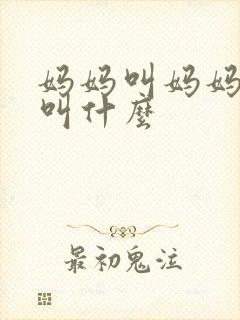 妈妈叫妈妈
叫什麼
最初鬼泣